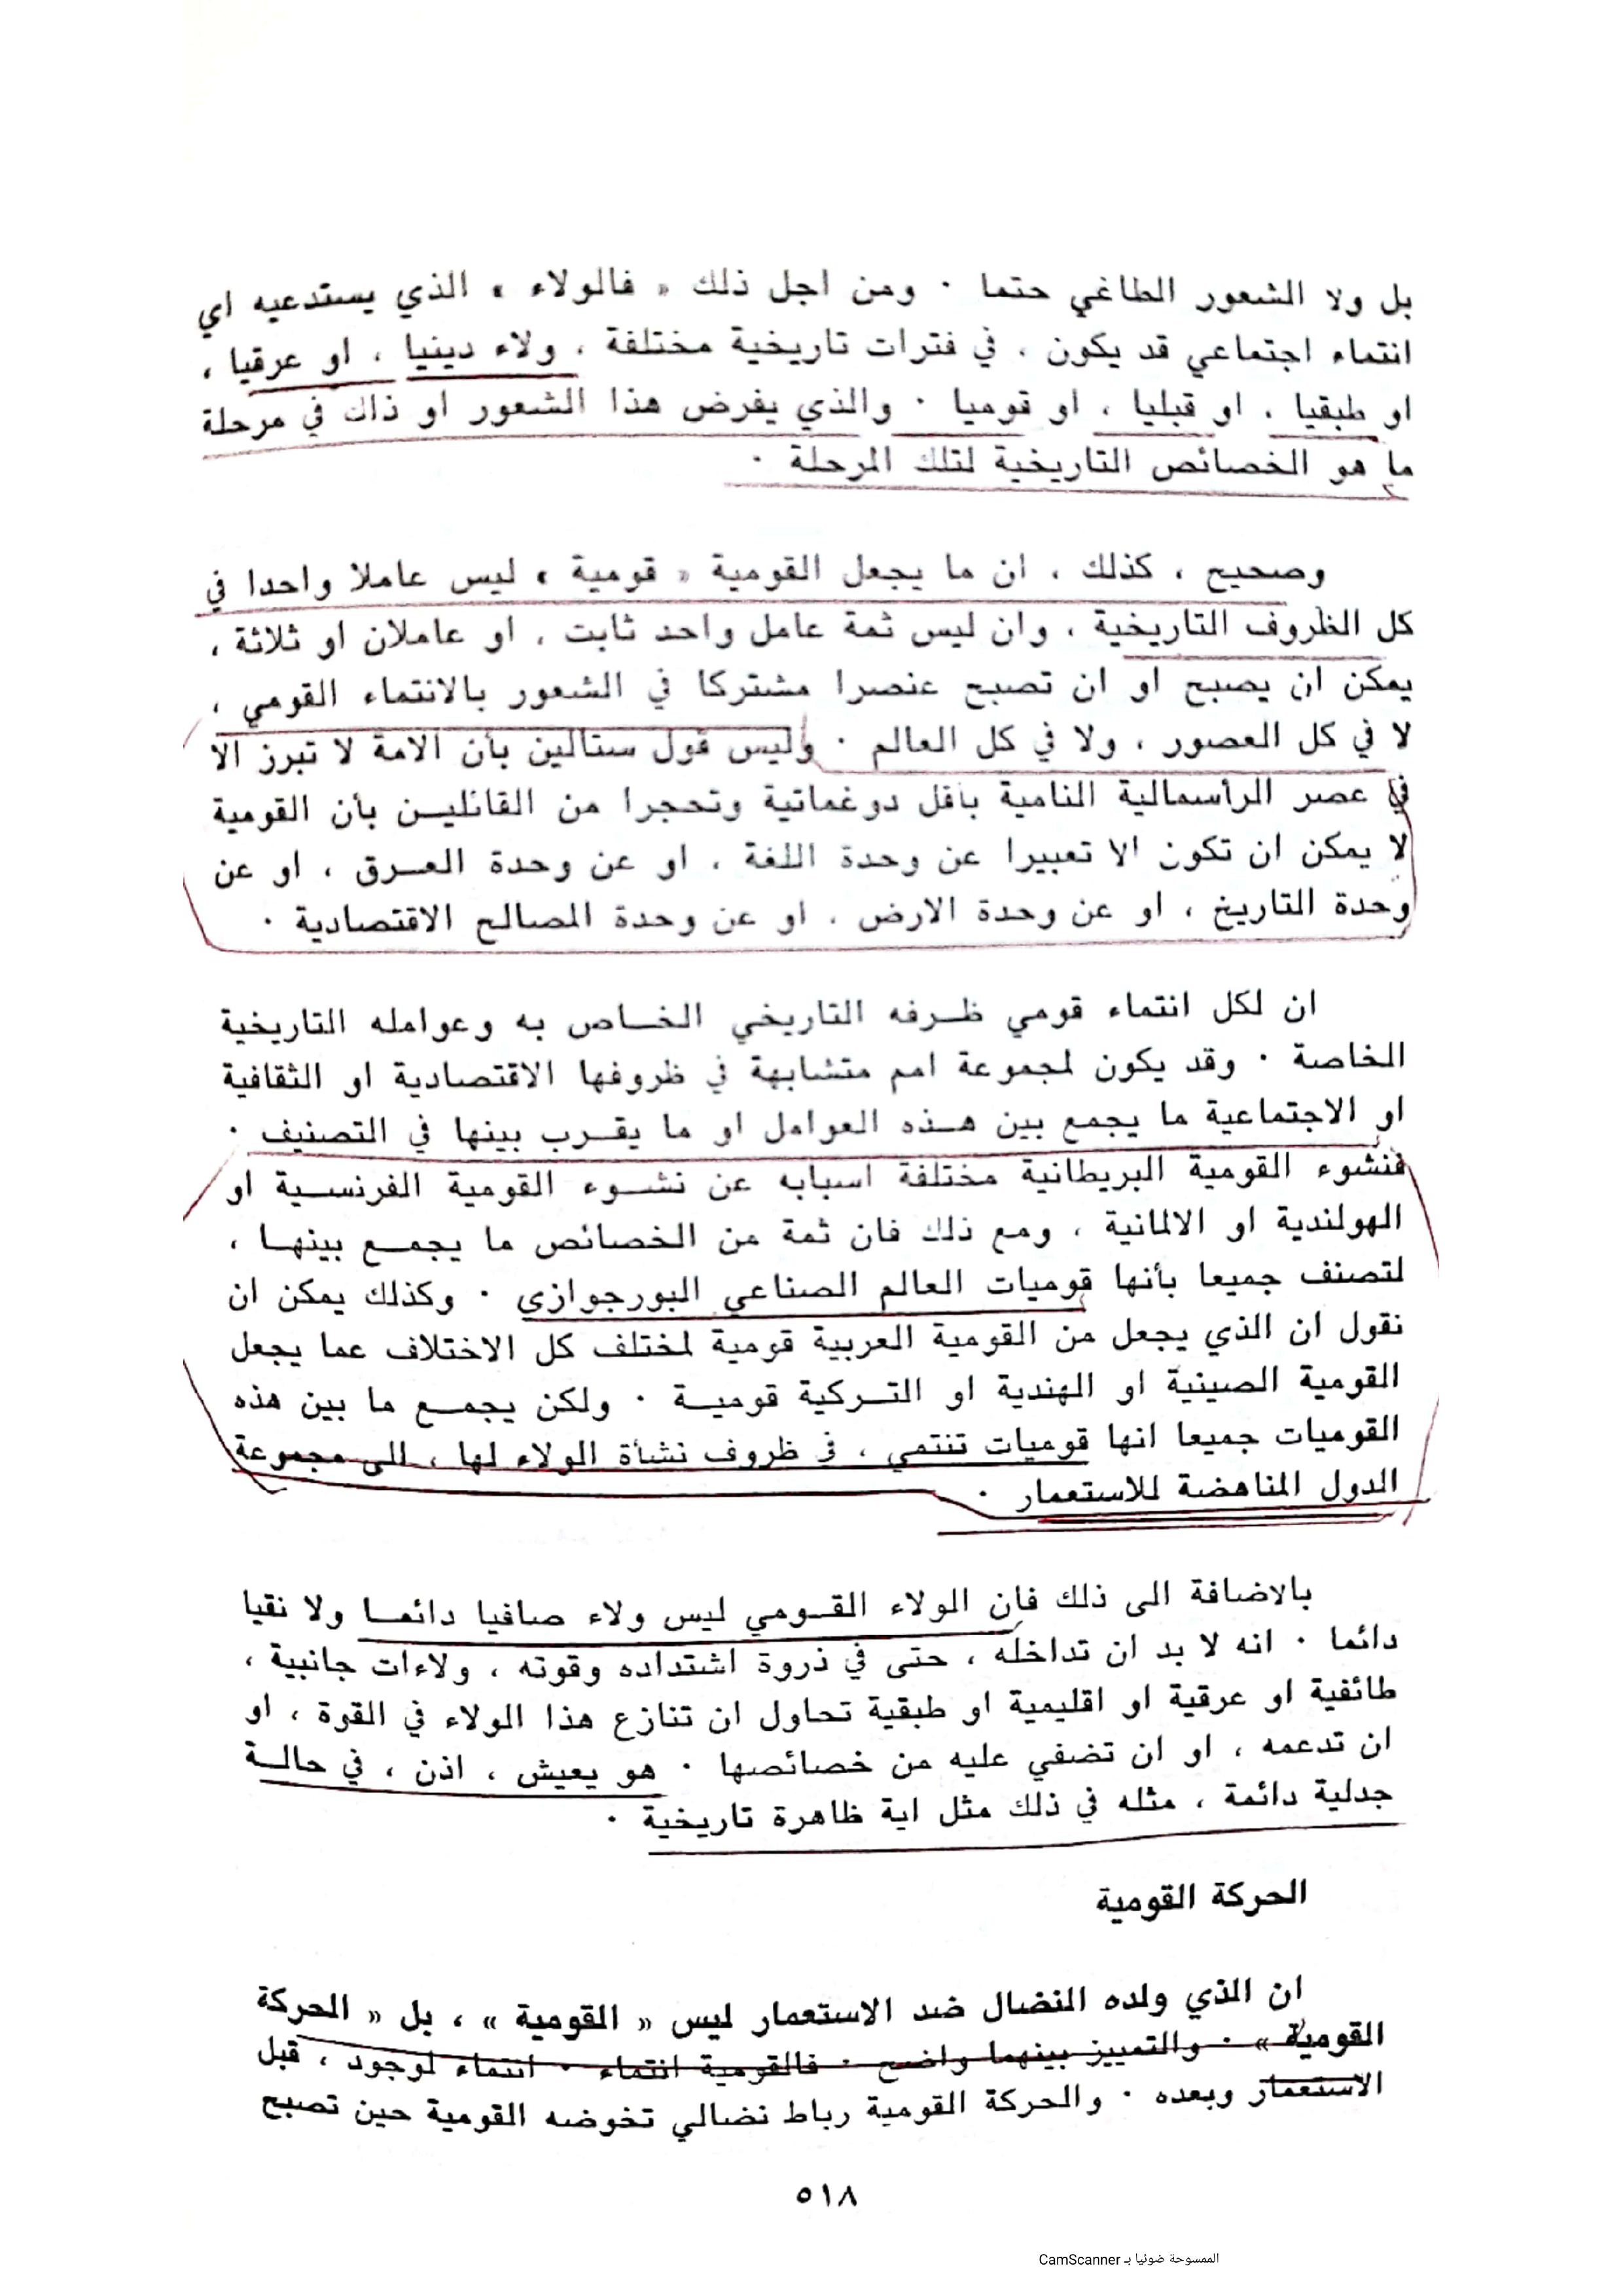 بل ولا الشعور الطاغي حتما ٠ ومن اجل ذلك « فالولاء » الذي يستدعيه اي
انتماء اجتماعي قد يكون ، في فترات تاريخية مختلفة ، ولاء دينيا ، او عرقيا ،
او طبقيا ، او قبليا ، او قوميا ٠ والذي يفرض هذا الشعور او ذاك في مرحلة
ما هو الخصائص التاريخية لتلك المرحلة ٠
وصحيح ، كذلك ، ان ما يجعل القومية « قومية » ليس عاملا واحدا في
كل الظروف التاريخية ، وان ليس ثمة عامل واحد ثابت ، او عاملان او ثلاثة ،
يمكن ان يصبح او ان تصبح عنصرا مشتركا في الشعور بالانتماء القومي ،
لا في كل العصور ، ولا في كل العالم ٠ وليس قول ستالين بأن الامة لا تبرز الا
في عصر الرأسمالية النامية بأقل دوغماتية وتحجرا من القائليـن بأن القومية
لا يمكن ان تكون الا تعبيرا عن وحدة اللغة ، او عن وحدة العـرق ، او عن
وحدة التاريخ ، او عن وحدة الارض ، او عن وحدة المصالح الاقتصادية ٠
ان لكل انتماء قومي ظـرفه التاريخي الخـاص به وعوامله التاريخية
الخاصة ٠ وقد يكون لمجموعة امم متشابهة في ظروفها الاقتصادية او الثقافية
او الاجتماعية ما يجمع بين هـذه العوامل او ما يقـرب بينها في التصنيف ٠
فنشوء القومية البريطانية مختلفة اسبابه عن نشـوء القومية الفرنسـية او
الهولندية او الالمانية ، ومع ذلك فان ثمة من الخصائص ما يجمـع بينهـا ،
لتصنف جميعا بأنها قوميات العالم الصناعي البورجوازي ٠ وكذلك يمكن ان
نقول ان الذي يجعل من القومية العربية قومية لمختلف كل الاختلاف عما يجعل
القومية الصينية او الهندية او التـركية قوميـة ٠ ولكن يجمـع ما بين هذه
القوميات جميعا انها قوميات تنتمي ، في ظروف نشأة الولاء لها ، الى مجموعة
الدول المناهضة للاستعمار ٠
بالاضافة الى ذلك فان الولاء القـومي ليس ولاء صافيا دائمـا ولا نقيا
دائما ٠ انه لا بد ان تداخله ، حتى في ذروة اشتداده وقوته ، ولاءات جانبية ،
طائفية او عرقية او اقليمية او طبقية تحاول ان تنازع هذا الولاء في القوة ، او
ان تدعمه ، او ان تضفي عليه من خصائصها ٠ هو يعيش ، اذن ، في حالـة
جدلية دائمة ، مثله في ذلك مثل اية ظاهرة تاريخية ٠
الحركة القومية
ان الذي ولده النضال ضد الاستعمار ليس « القومية » ، بل « الحركة
القومية » ٠ والتمييز بينهما واضح ٠ فالقومية انتماء ٠ انتماء لوجود ، قبل
الاستعمار وبعده ٠ والحركة القومية رباط نضالي تخوضه القومية حين تصبح
٥١٨
الممسوحة ضوئيا بـ CamScanner